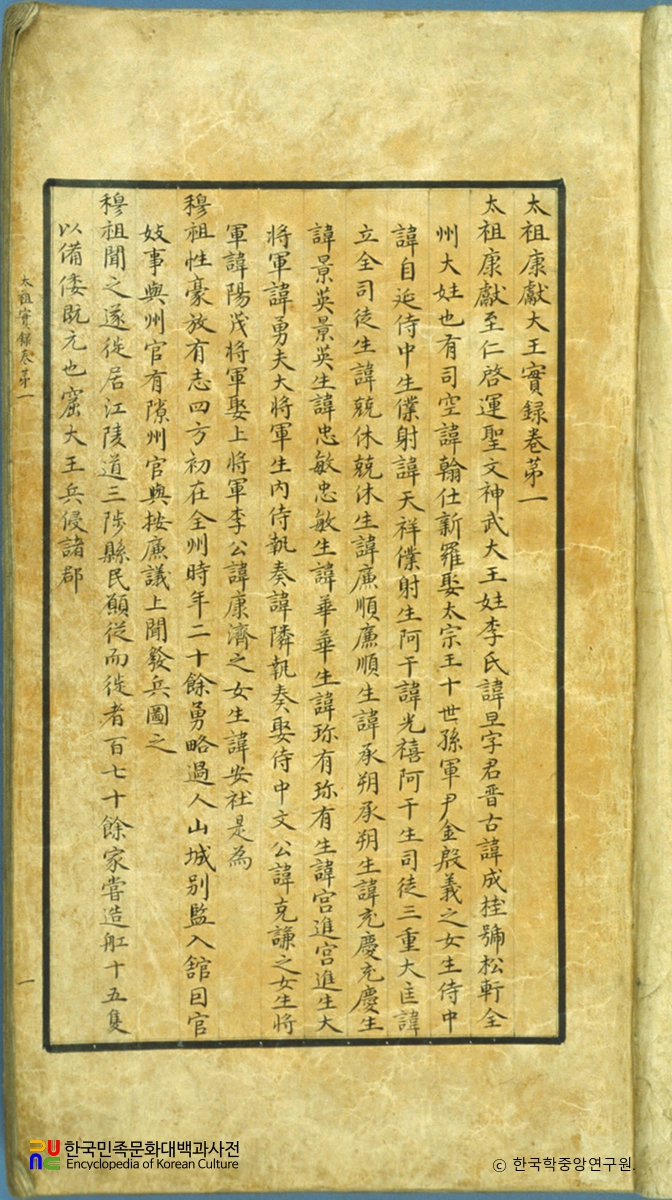 太祖康獻大王實錄卷苐一
太祖康獻至仁啓運聖文神武大王姓李氏諱旦字君晋古諱成桂號松軒全
州大姓也有司空諱翰仕新羅娶太宗王十世孫軍尹金殷義之女生侍中
諱自延侍中生僕射諱天祥僕射生阿干諱光禧阿干生司徒三重大匡諱
立全司徒生諱兢休兢休生諱廉順廉順生諱承朔承朔生諱充慶充慶生
諱景英景英生諱忠敏忠敏生諱華華生諱珎有珎有生諱宫進宫進生大
將軍諱勇夫大將軍生內侍執奏諱隣執奏娶侍中文公諱克謙之女生將
軍諱陽茂將軍娶上將軍李公諱康濟之女生諱安社是為
穆祖性豪放有志四方初在全州時年二十餘勇略過人山城别監入舘因官
妓事與州官有隙州官與按廉議上聞發兵圖之
穆祖聞之遂徙居江陵道三陟縣民願從而徙者百七十餘家嘗造舡十五隻
以備倭旣元也窟大王兵侵諸郡
太祖實錄卷苐一
一
한국민족문화대백과사전
Encyclopedia of Korean Culture
ⓒ 한국학중앙연구원.